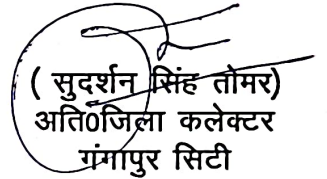 ( सुदर्शन सिंह तोमर)
अति0जिला कलेक्टर
गंगापुर सिटी